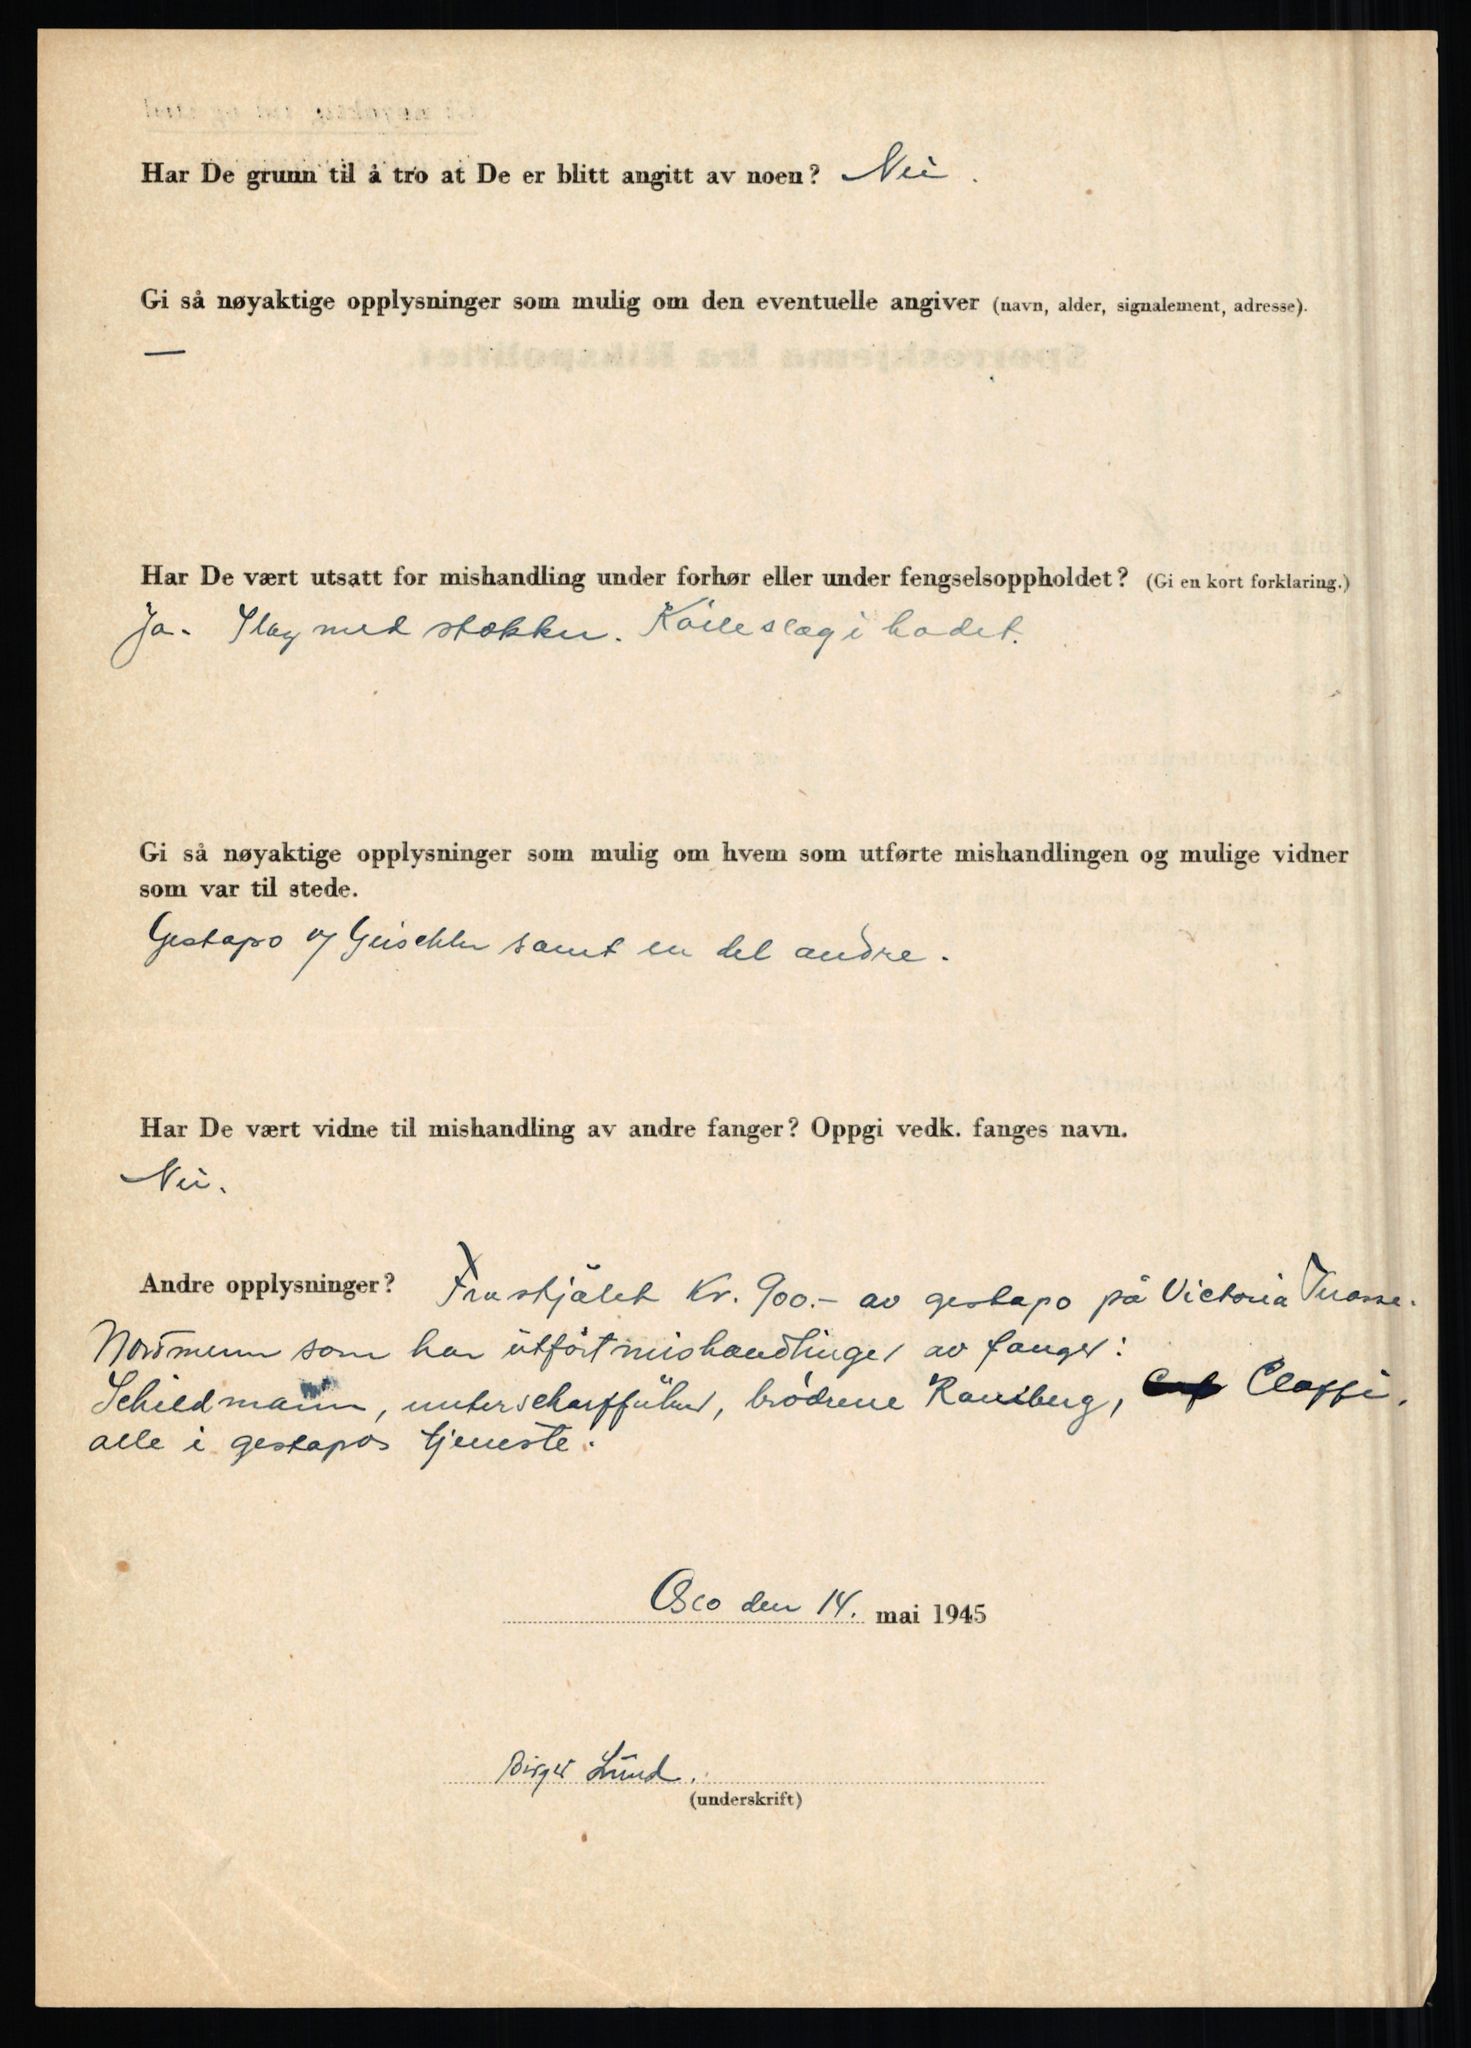 Har De grunn til å tro at De er blitt angitt av noen? Nei.
Gi så nøyaktige opplysninger som mulig om den eventuelle angiver (navn, alder, signalement, adresse).
—
Spørreskjema fra Rikspolitiet.
Har De vært utsatt for mishandling under forhør eller under fengselsoppholdet? (Gi en kort forklaring.)
Ja. Slag med stokker. Kølleslag i hodet.
Gi så nøyaktige opplysninger som mulig om hvem som utførte mishandlingen og mulige vidner
som var til stede.
Gestapo og Geischler samt en del andre.
Har De vært vidne til mishandling av andre fanger? Oppgi vedk. fanges navn.
Nei.
Andre opplysninger? Frastjålet Kr. 900.- av gestapo på Victoria Terasse.
Nordmenn som har utført mishandlinger av fanger:
Schildmann, unterscharfführer, brødrene Ransberg, Cloffi,
alle i gestapos tjeneste.
Oslo den 14. mai 1945
Birger Lund.
(underskrift)